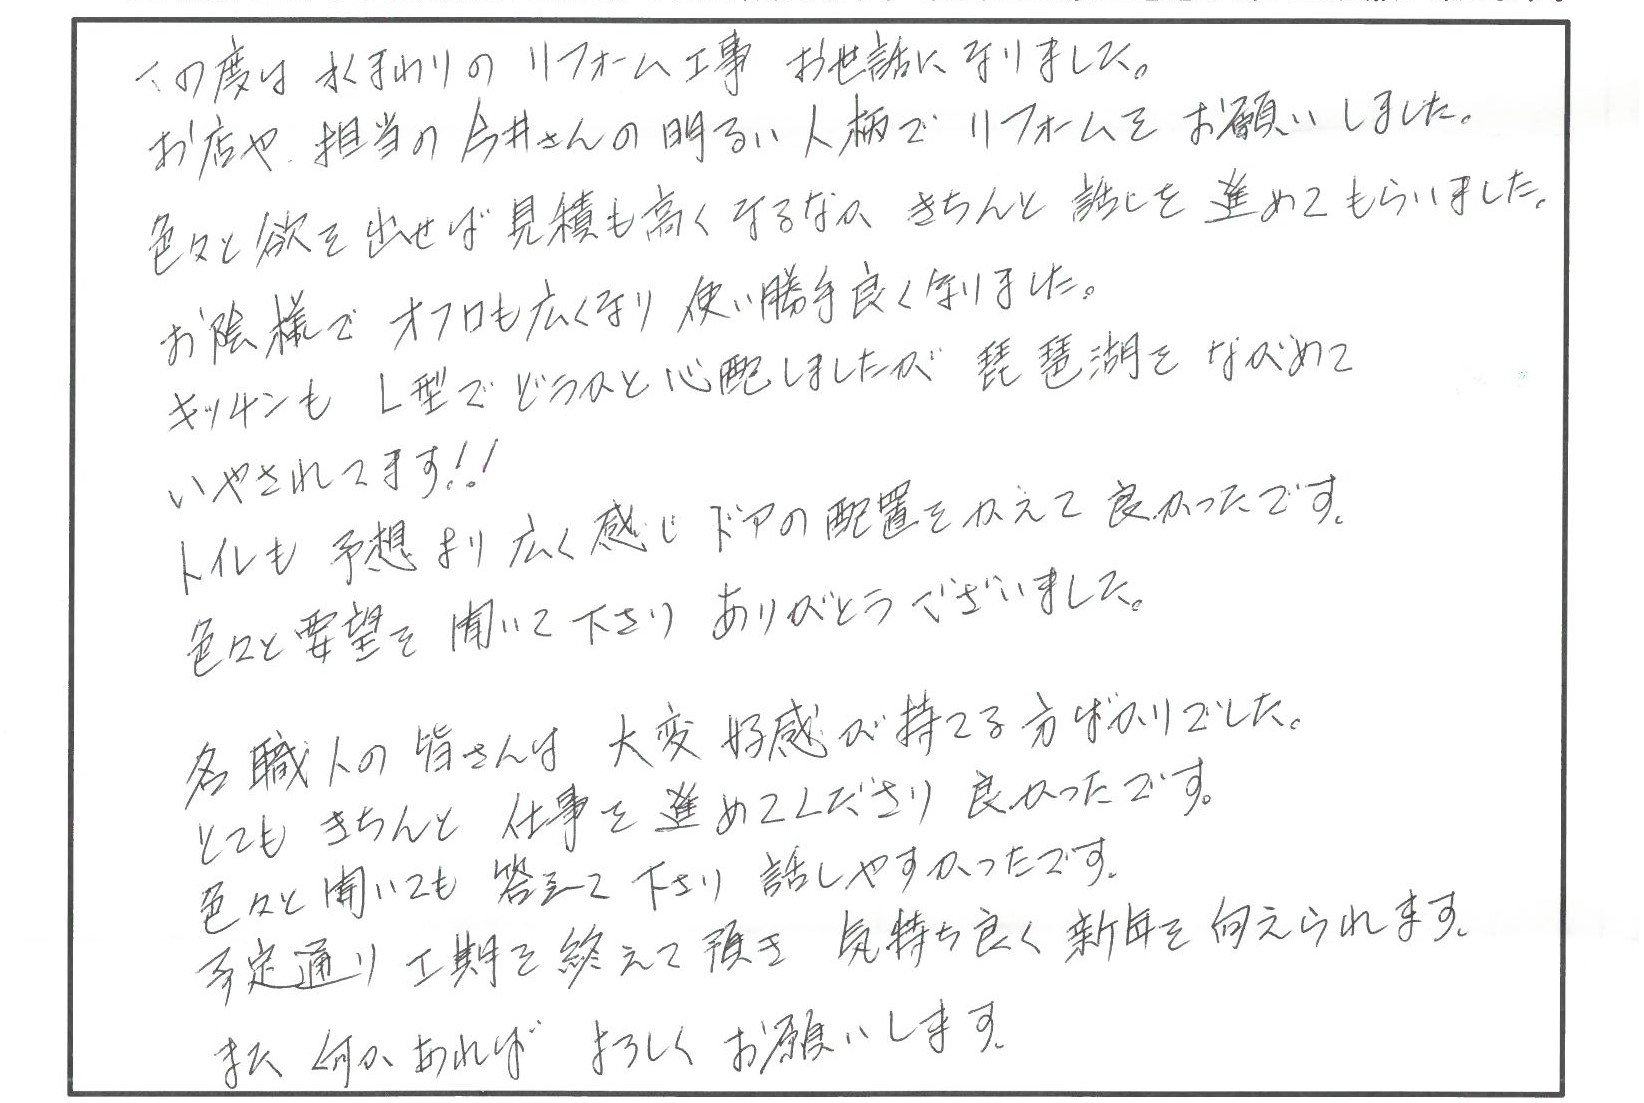 この度は 水まわりの リフォーム工事 お世話になりました。
お店や 担当の 今井さんの 明るい 人柄で リフォームを お願いしました。
色々と 欲を 出せば 見積も高く なるなか きちんと 話しを 進めてもらいました。
お陰様で オフロも広くなり 使い勝手良くなりました。
キッチンも L型で どうかと 心配しましたが 琵琶湖を ながめて
いやされてます!!
トイレも 予想より 広く感じ ドアの配置をかえて 良かったです。
色々と要望を 聞いて 下さり ありがとうございました。
各職人の 皆さんは 大変 好感が持てる方ばかりでした。
とても きちんと 仕事を 進めてくださり 良かったです。
色々と聞いても 答えて 下さり 話しやすかったです。
予定通り 工期を 終えて 頂き 気持ち良く 新年を 向えられます。
また 何か あれば よろしく お願いします。